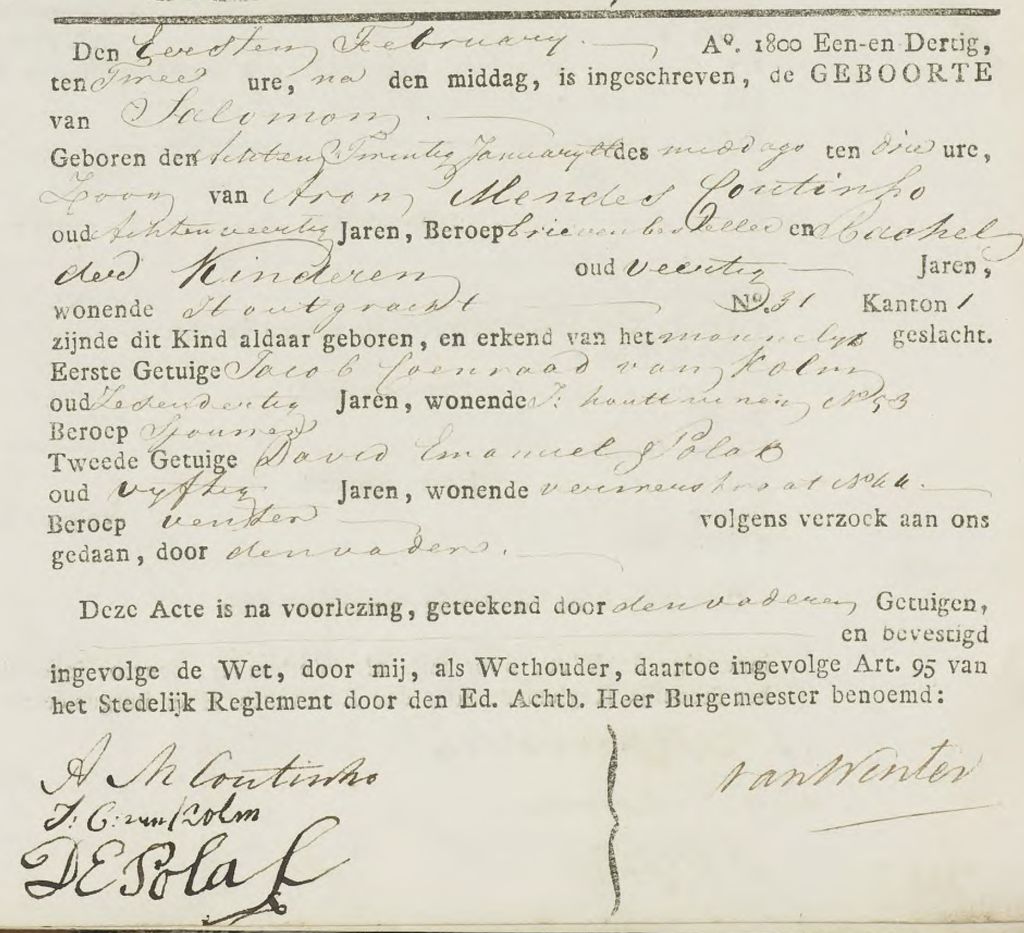 Den Eersten February A°. 1800 Een-en Dertig,
ten Twee ure, na den middag, is ingeschreven, de GEBOORTE
van Salomon
Geboren den Achten Twintig January des middags ten drie ure,
Zoon van Aron Mendes Coutinho
oud Achtenveertig Jaren, Beroep brievenbesteller en Rachel
der Kinderen oud veertig Jaren,
wonende Houtgracht N°. 31 Kanton 1
zijnde dit Kind aldaar geboren, en erkend van het mannelyk geslacht.
Eerste Getuige Jacob Coenraad van Kolm
oud Zevendertig Jaren, wonende N° 53
Beroep
Tweede Getuige David Emanuel Polak
oud vyftig Jaren, wonende N° 44
Beroep venter volgens verzoek aan ons
gedaan, door den vader.
Deze Acte is na voorlezing, geteekend door den vader en Getuigen,
en bevestigd
ingevolge de Wet, door mij, als Wethouder, daartoe ingevolge Art. 95 van
het Stedelijk Reglement door den Ed. Achtb. Heer Burgemeester benoemd:
A M Coutinho van Winter
J: C: van Kolm
D E Polak